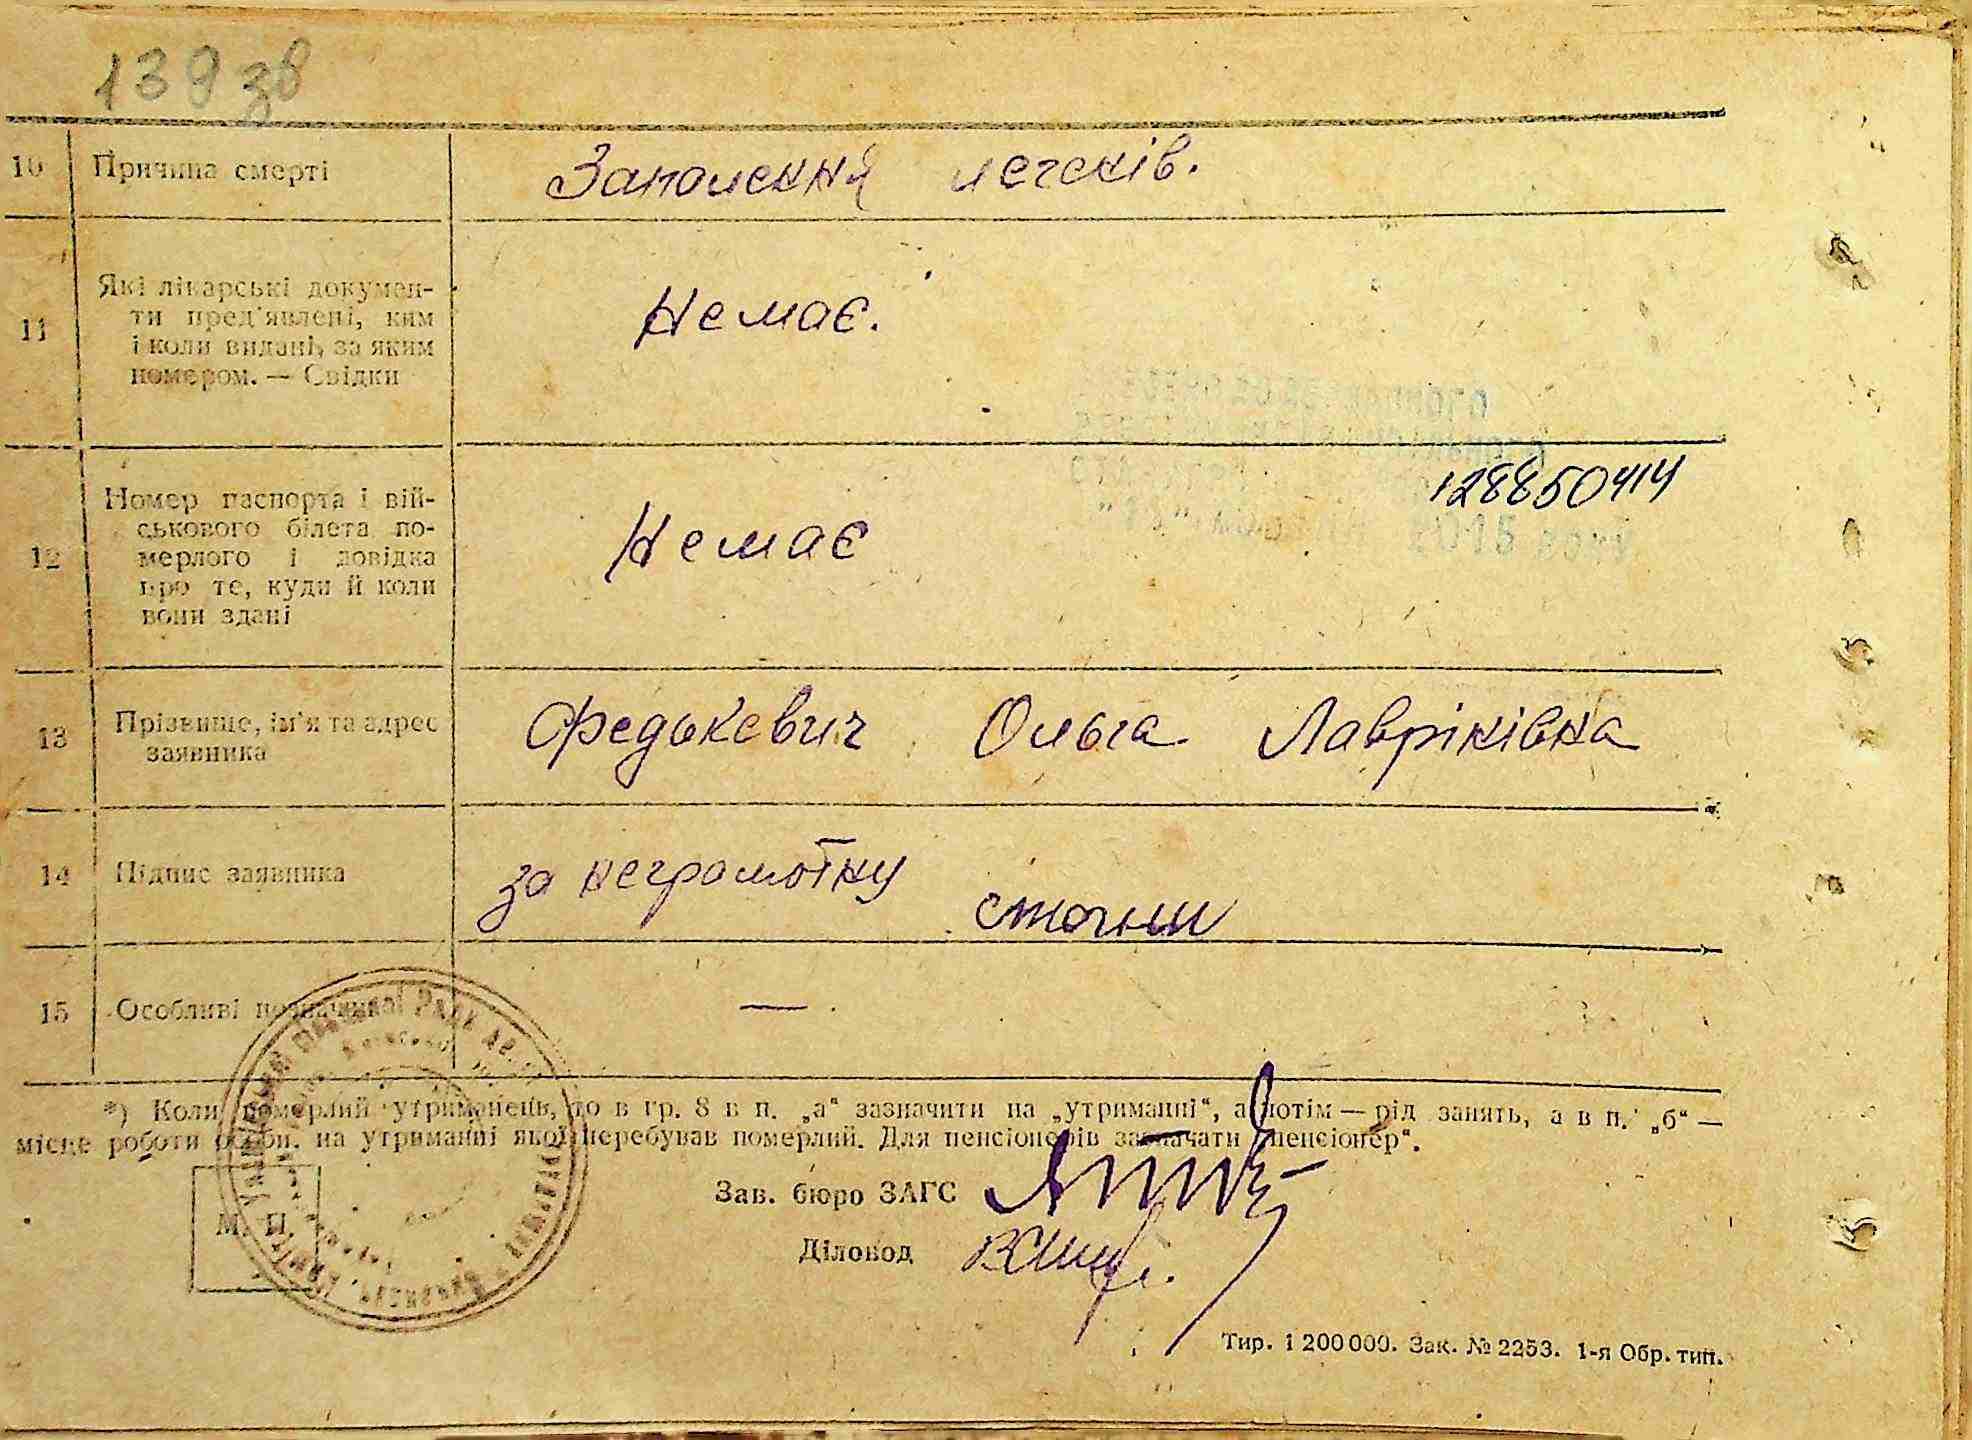 139 зв
10 Причина смерті Запалення легенів.
11 Які лікарські докумен-
ти пред'явлені, ким
і коли видані, за яким
номером. — Свідки
Немає.
12 Номер паспорта і вій-
ськового білета по-
мерлого і довідка
про те, куди й коли
вони здані
Немає
128850414
2015
13 Прізвище, ім'я та адрес
заявника
Федькевич Ольга Лавріківка
14 Підпис заявника за неграмотну
15 Особливі позначки —
*) Коли померлий утриманець, то в гр. 8 в п. „а“ зазначити на „утриманні“, а потім — рід занять, а в п. „б“ —
місце роботи особи, на утриманні якої перебував померлий. Для пенсіонерів зазначати „пенсіонер“.
Зав. бюро ЗАГС
Діловод
М. П.
Тир. 1 200 000. Зак. № 2253. 1-я Обр. тип.